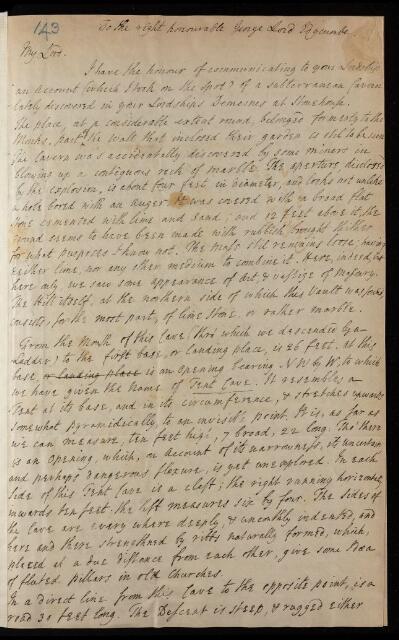 143
To the right honourable George Lord Edgcumbe
My Lord.
I have the honour of communicating to your Lordship
an account (which I took on the spot) of a subterranean cavern
lately discovered in your Lordships Demesnes at Stonehouse.
The place, at a considerable extent round, belonged formerly to the
Monks, part of the wall that inclosed their garden is still to be seen.
The Cavern was accidentally discovered by some miners in
blowing up a contiguous rock of marble. The aperture disclosed
by the explosion, is about four feet in diameter, and looks not unlike
a hole bored with an auger. It was covered with a broad flat
stone cemented with lime and sand; and 12 feet above it, the
ground seems to have been made with rubbish brought thither
for what purposes I know not. The mass still remains loose, having
neither lime, nor any other medium to combine it. Here, indeed, &
here only we saw some appearance of Art, & vestige of Masonry.
The Hill itself, at the northern side of which this Vault was found,
consists, for the most part, of lime stone, or rather marble.
From the Mouth of this Cave, (thro' which we descended by a
Ladder) to the first base, or landing place, is 26 feet. At this
base, or landing place is an opening bearing N.W. by W. to which
we have given the name of Tent Cave. It resembles a
Tent at its base, and in its circumference, & stretches upwards
somewhat pyramidically to an invisible point. It is, as far as
we can measure, ten feet high, 7 broad, 22 long. Tho' there
is an opening, which, on account of its narrowness, its uncertain
and perhaps dangerous flexure, is yet unexplored. In each
side of this Tent Cave is a cleft; the right running horizontally
inwards ten feet, the left measures six by four. The sides of
the cave are every where deeply, & uncouthly indented, and
here and there strengthened by ribbs naturally formed, which,
placed at a due distance from each other, give some Idea
of fluted pillars in old Churches.
In a direct line from this Cave to the opposite point, is a
road 30 feet long. The Descent is steep, & rugged either